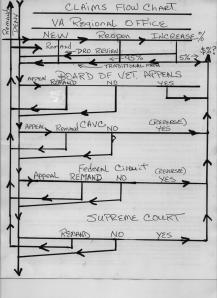 CLAIMS FLOW CHART
VA Regional OFFICE
NEW Reopen INCREASE-%
Remand
DRO REVIEW
95% 5%
TRADITIONAL
$%?
REMAND
DENY
BOARD OF VET. APPEALS
APPEAL REMAND NO YES
CAVC (REVERSE)
APPEAL Remand NO YES
Federal Circuit (REVERSE)
Appeal REMAND NO YES
SUPREME COURT
REMAND NO YES